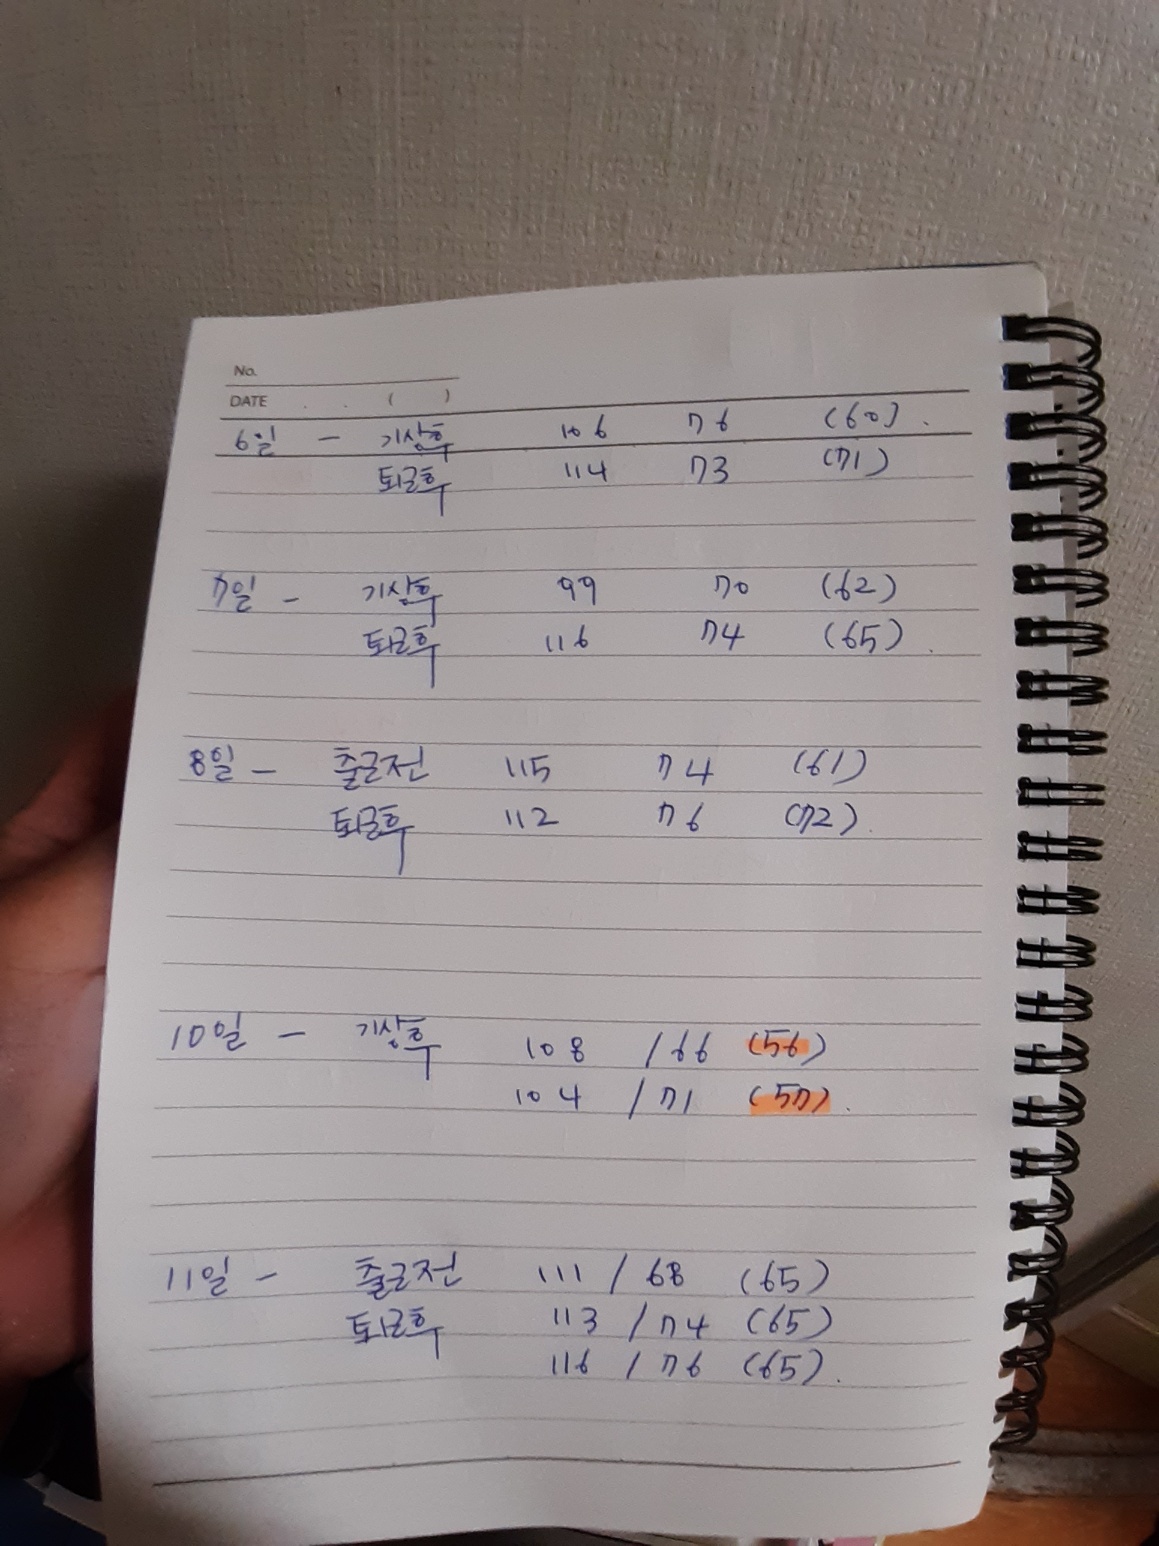 No.
DATE . . ( )
6일 - 기상후 106 76 (60).
퇴근후 114 73 (71)
7일 - 기상후 99 70 (62)
퇴근후 116 74 (65).
8일 - 출근전 115 74 (61)
퇴근후 112 76 (72).
10일 - 기상후 108 /66 (56)
104 /71 (57).
11일 - 출근전 111 / 68 (65)
퇴근후 113 / 74 (65)
116 / 76 (65).